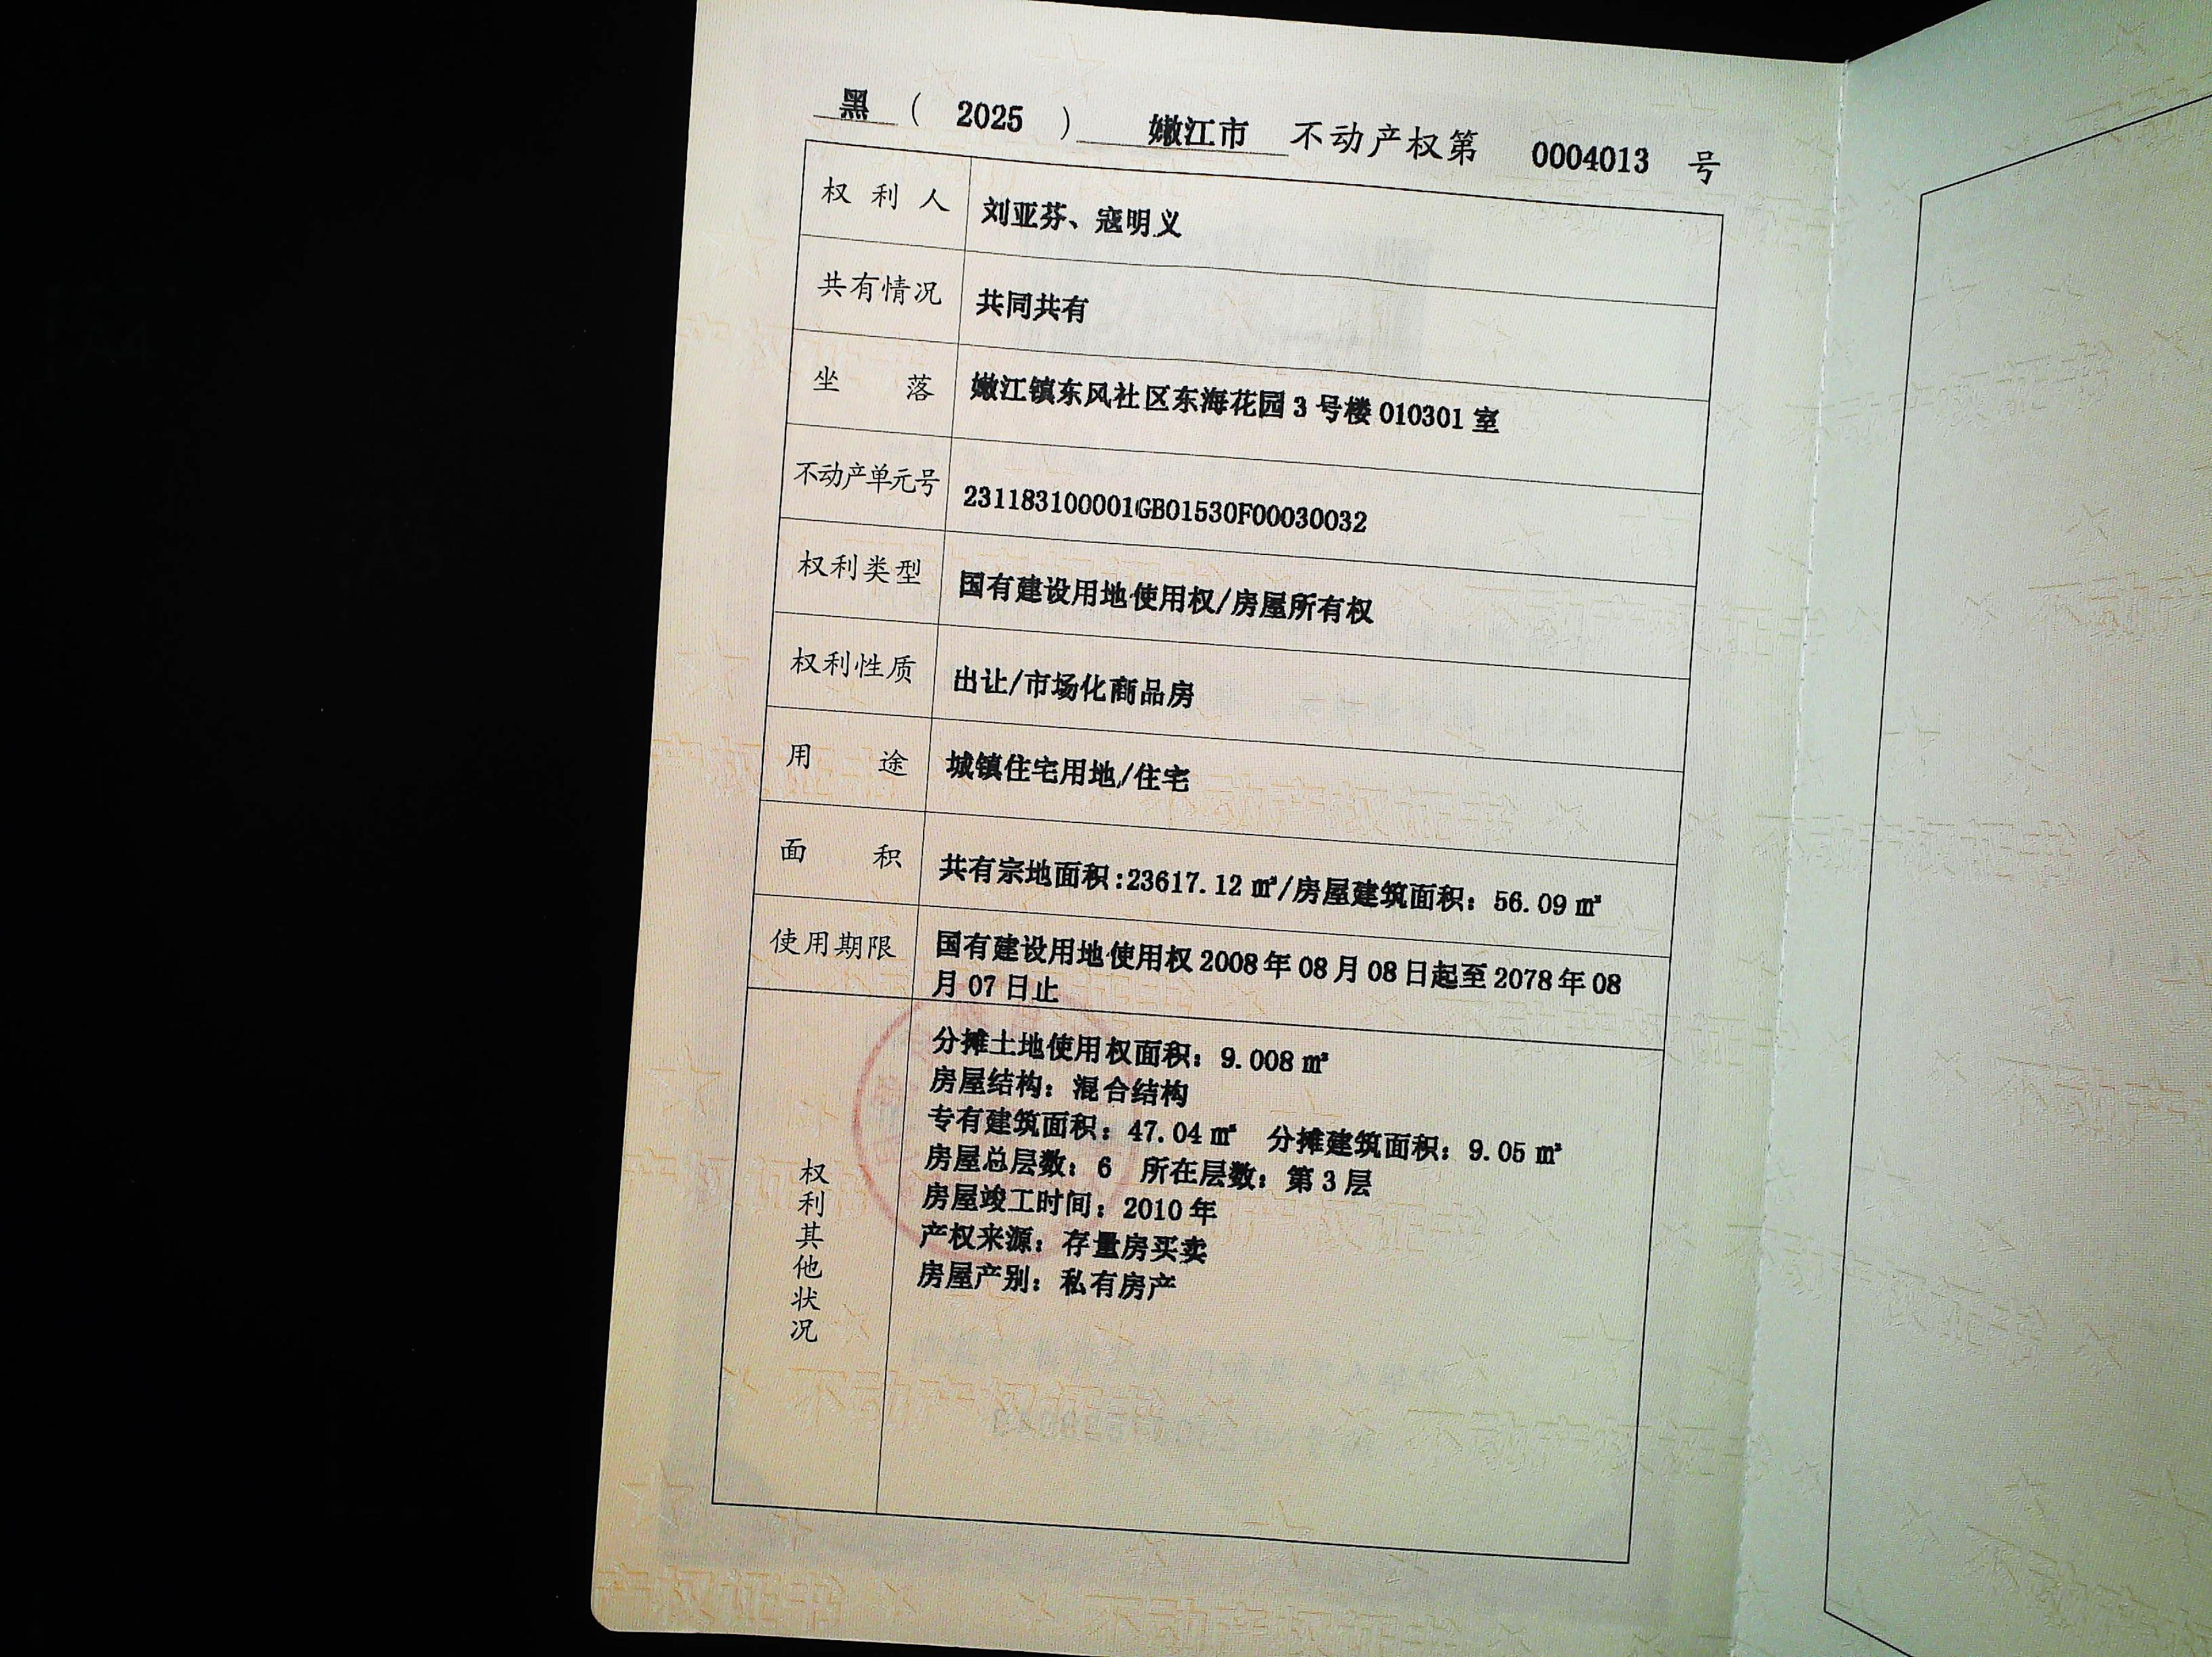 黑 ( 2025 ) 嫩江市 不动产权第 0004013 号
权利人 刘亚芬、寇明义
共有情况 共同共有
坐落 嫩江镇东风社区东海花园 3 号楼 010301 室
不动产单元号 231183100001GB01530F00030032
权利类型 国有建设用地使用权/房屋所有权
权利性质 出让/市场化商品房
用途 城镇住宅用地/住宅
面积 共有宗地面积:23617.12 ㎡/房屋建筑面积：56.09 ㎡
使用期限 国有建设用地使用权 2008 年 08 月 08 日起至 2078 年 08
月 07 日止
权利其他状况
分摊土地使用权面积：9.008 ㎡
房屋结构：混合结构
专有建筑面积：47.04 ㎡ 分摊建筑面积：9.05 ㎡
房屋总层数：6 所在层数：第 3 层
房屋竣工时间：2010 年
产权来源：存量房买卖
房屋产别：私有房产